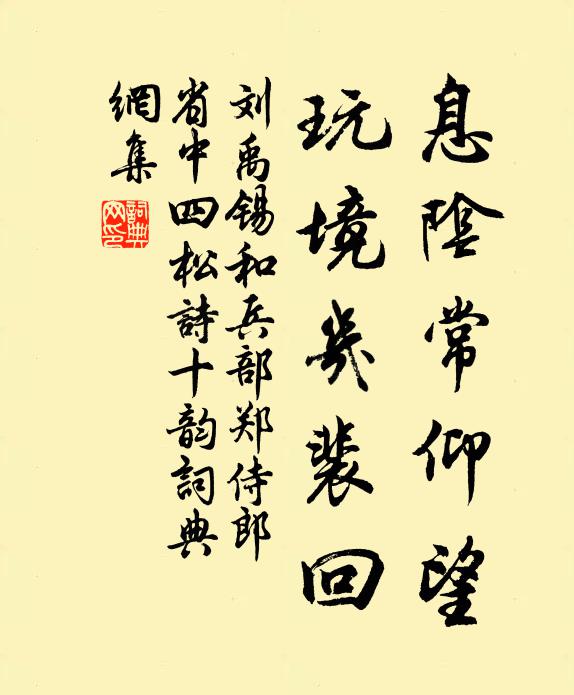 息陰常仰望
玩境幾裴回
刘禹锡和兵部郑侍郎
省中四松詩十韵詞典
網集
詞典
网印